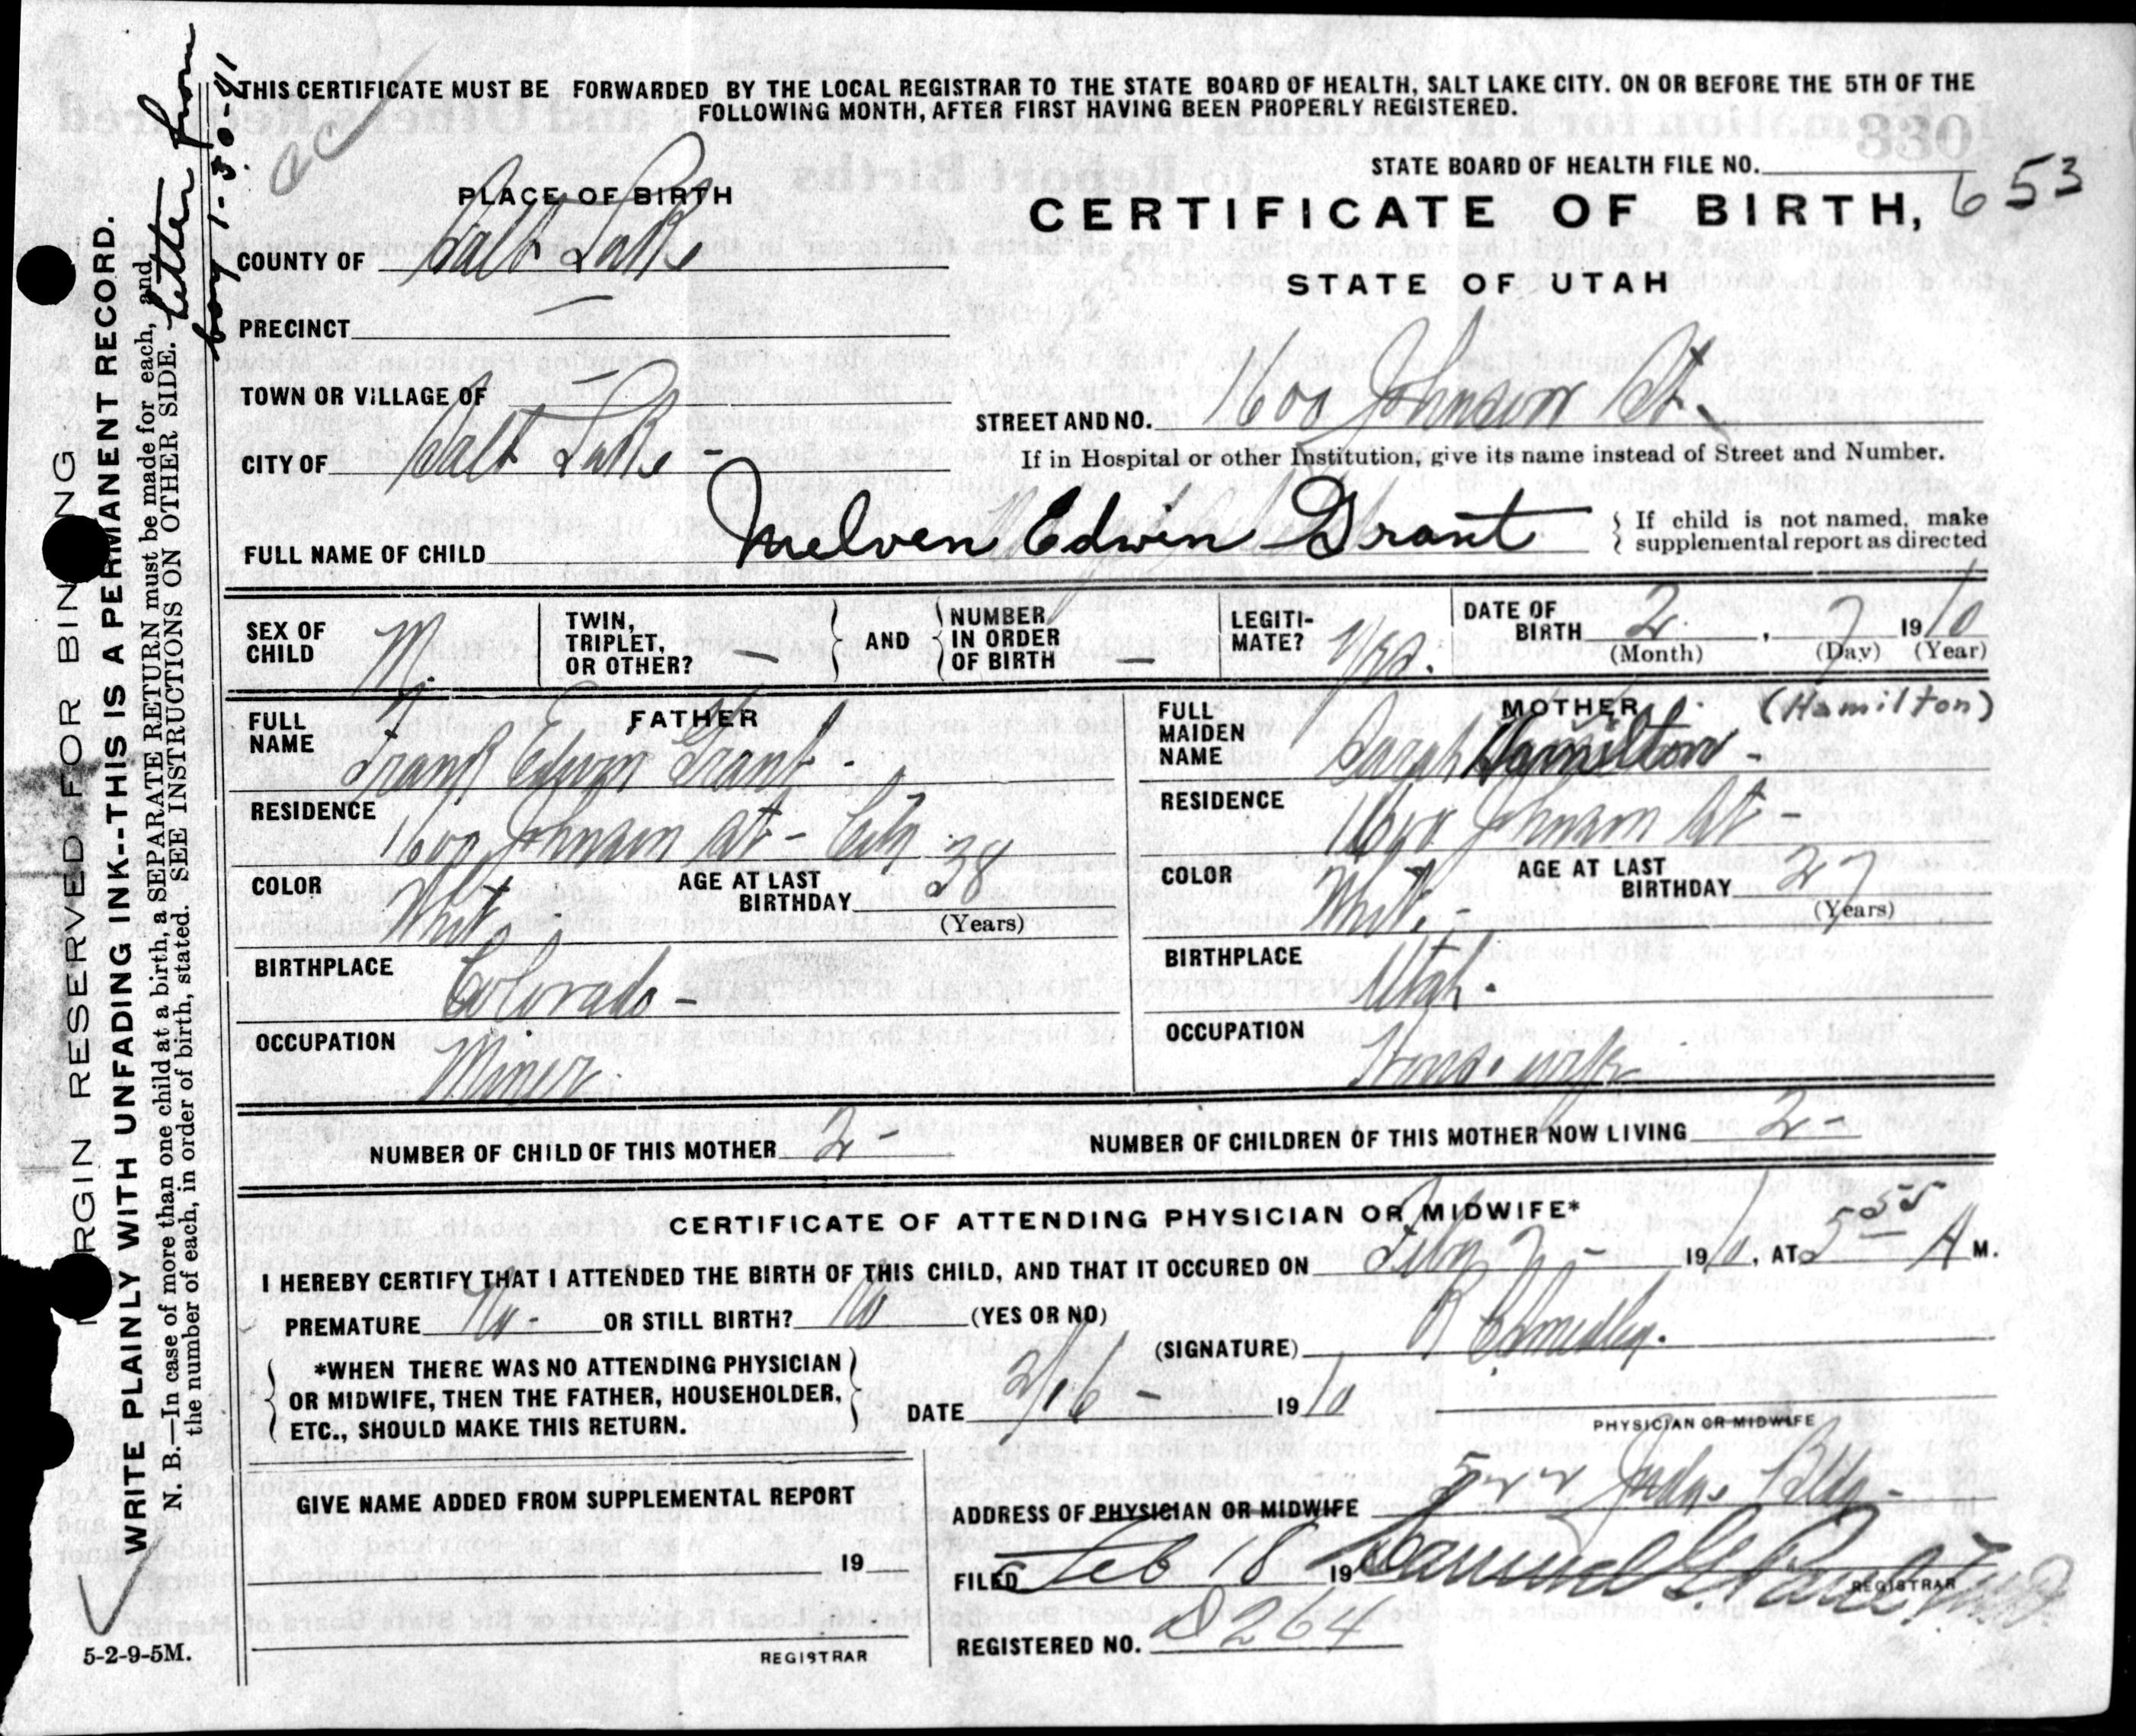 letter from
boy 1-30-41
THIS CERTIFICATE MUST BE FORWARDED BY THE LOCAL REGISTRAR TO THE STATE BOARD OF HEALTH, SALT LAKE CITY. ON OR BEFORE THE 5TH OF THE
FOLLOWING MONTH, AFTER FIRST HAVING BEEN PROPERLY REGISTERED.
STATE BOARD OF HEALTH FILE NO. 653
PLACE OF BIRTH
CERTIFICATE OF BIRTH,
STATE OF UTAH
COUNTY OF Salt Lake
PRECINCT —
TOWN OR VILLAGE OF —
STREET AND NO. Johnson St.
CITY OF Salt Lake -
If in Hospital or other Institution, give its name instead of Street and Number.
FULL NAME OF CHILD Melven Edwin Grant
{ If child is not named, make
supplemental report as directed
SEX OF CHILD M. TWIN, TRIPLET, OR OTHER? — } AND { NUMBER IN ORDER OF BIRTH — LEGITI-MATE? Yes. DATE OF BIRTH 2, 7 1910
(Month) (Day) (Year)
FATHER
FULL NAME Frank Edwin Grant -
RESIDENCE Johnson St - City
COLOR White AGE AT LAST BIRTHDAY 38
(Years)
BIRTHPLACE Colorado -
OCCUPATION Miner.
MOTHER (Hamilton)
FULL MAIDEN NAME Sarah Hamilton -
RESIDENCE Johnson St -
COLOR Whit. - AGE AT LAST BIRTHDAY 27
(Years)
BIRTHPLACE Utah.
OCCUPATION Housewife
NUMBER OF CHILD OF THIS MOTHER 2 - NUMBER OF CHILDREN OF THIS MOTHER NOW LIVING 2 -
CERTIFICATE OF ATTENDING PHYSICIAN OR MIDWIFE*
I HEREBY CERTIFY THAT I ATTENDED THE BIRTH OF THIS CHILD, AND THAT IT OCCURED ON Feby 7 - 1910, AT 5 55 A M.
PREMATURE No - OR STILL BIRTH? No (YES OR NO)
(SIGNATURE)
*WHEN THERE WAS NO ATTENDING PHYSICIAN
OR MIDWIFE, THEN THE FATHER, HOUSEHOLDER,
ETC., SHOULD MAKE THIS RETURN.
DATE 2/16 - 1910
PHYSICIAN OR MIDWIFE
GIVE NAME ADDED FROM SUPPLEMENTAL REPORT
19
REGISTRAR
ADDRESS OF PHYSICIAN OR MIDWIFE 522 Judge Bldg -
FILED Feb 18 19 Samuel G. Paul
REGISTRAR
REGISTERED NO. D 264
RGIN RESERVED FOR BIN NG
WRITE PLAINLY WITH UNFADING INK--THIS IS A PERMANENT RECORD.
N. B.—In case of more than one child at a birth, a SEPARATE RETURN must be made for each, and
the number of each, in order of birth, stated. SEE INSTRUCTIONS ON OTHER SIDE.
5-2-9-5M.